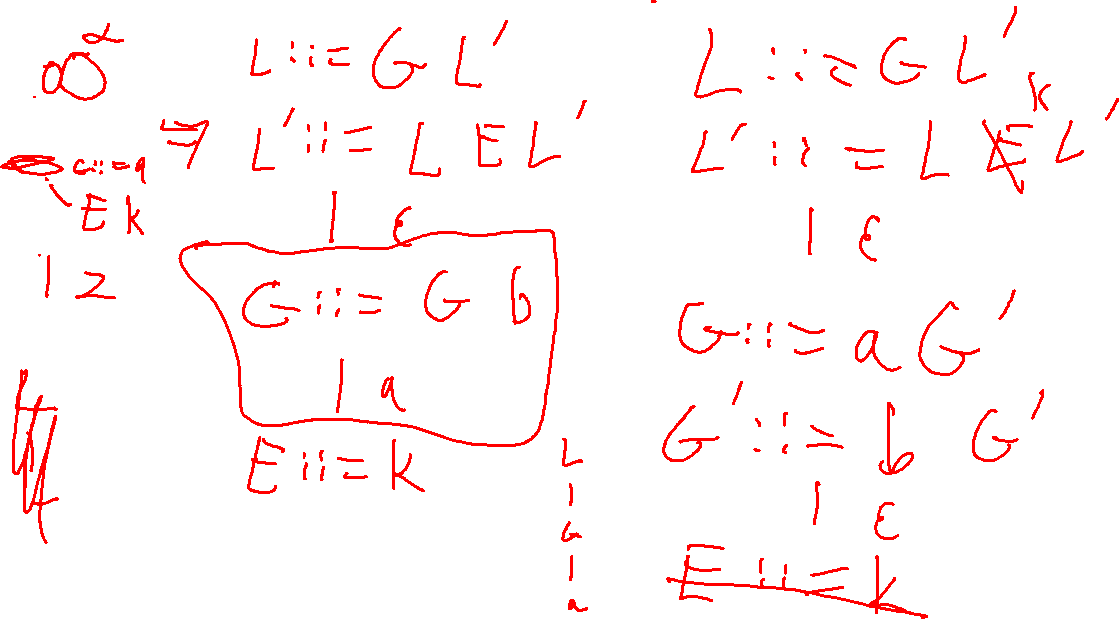 ∞^α
⇒
c ::= a
E k
| z
L ::= G L'
L' ::= L E L'
| ε
G ::= G b
| a
E ::= k
L
|
G
|
a
L ::= G L'
k
L' ::= L E L'
| ε
G ::= a G'
G' ::= b G'
| ε
E ::= k